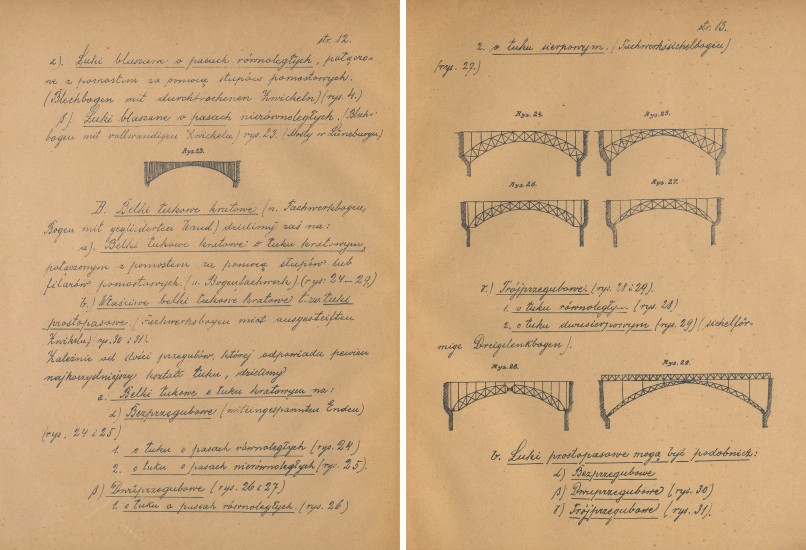 str. 12.
α). Łuki blaszane o pasach równoległych, połączo-
ne z pomostem za pomocą słupów pomostowych.
(Blechbogen mit durchbrochenen Zwickeln) (rys. 4.)
β). Łuki blaszane o pasach nierównoległych. (Blech-
bogen mit vollwandigen Zwickeln) rys. 23. (Mosty w Lüneburgu)
Rys. 23.
B. Belki łukowe kratowe (n. Fachwerkbogen,
Bogen mit gegliederter Wand) dzielimy zaś na:
a). Belki łukowe kratowe o łuku kratowym,
połączonym z pomostem za pomocą słupów lub
filarów pomostowych. (n. Bogenfachwerk) (rys. 24–29)
b.) Właściwe belki łukowe kratowe t. zw. łuki
prostopasowe (Fachwerksbogen mit ausgesteiften
Zwickeln) rys. 30 i 31.
Zależnie od ilości przegubów, której odpowiada pewien
najkorzystniejszy kształt łuku, dzielimy
a. Belki łukowe o łuku kratowym na:
α) Bezprzegubowe (mit eingespannten Enden)
(rys. 24 i 25)
1. o łuku o pasach równoległych (rys. 24)
2. o łuku o pasach nierównoległych (rys. 25).
β) Dwuprzegubowe (rys. 26 i 27)
1. o łuku o pasach równoległych (rys. 26)
str. 13.
2. o łuku sierpowym. (Fachwerksichelbogen)
(rys. 27.)
Rys. 24.
Rys. 25.
Rys. 26.
Rys. 27.
γ.) Trójprzegubowe. (rys. 28 i 29).
1. o łuku równoległym (rys. 28)
2. o łuku dwusierpowym (rys. 29) (sichelför-
mige Dreigelenkbogen).
Rys. 28.
Rys. 29.
b. Łuki prostopasowe mogą być podobnież:
α) Bezprzegubowe
β) Dwuprzegubowe (rys. 30)
γ) Trójprzegubowe (rys. 31).